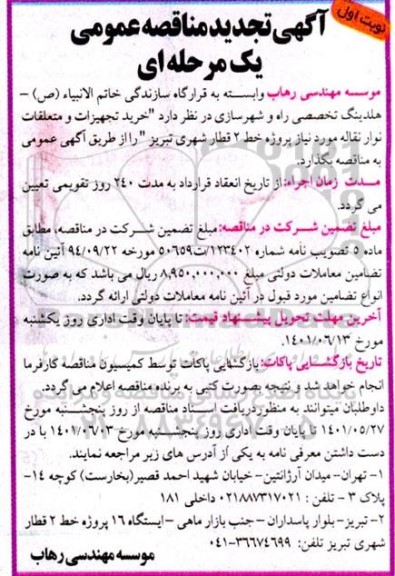 نوبت اول
آگهی تجدید مناقصه عمومی
یک مرحله ای
موسسه مهندسی رهاب وابسته به قرارگاه سازندگی خاتم الانبیاء (ص) –
هلدینگ تخصصی راه و شهرسازی در نظر دارد "خرید تجهیزات و متعلقات
نوار نقاله مورد نیاز پروژه خط ۲ قطار شهری تبریز "را از طریق آگهی عمومی
به مناقصه بگذارد.
مدت زمان اجراء: از تاریخ انعقاد قرارداد به مدت ۲۴۰ روز تقویمی تعیین
می گردد.
مبلغ تضمین شرکت در مناقصه: مبلغ تضمین شرکت در مناقصه، مطابق
ماده ۵ تصویب نامه شماره ۱۲۳۴۰۲/ت۵۰۶۵۹ مورخه ۹۴/۰۹/۲۲ آئین نامه
تضامین معاملات دولتی مبلغ ۸,۹۵۰,۰۰۰,۰۰۰ ریال می باشد که به صورت
انواع تضامین مورد قبول در آئین نامه معاملات دولتی ارائه گردد.
آخرین مهلت تحویل پیشنهاد قیمت: تا پایان وقت اداری روز یکشنبه
مورخ ۱۴۰۱/۰۶/۱۳.
تاریخ بازگشایی پاکات: بازگشایی پاکات توسط کمیسیون مناقصه کارفرما
انجام خواهد شد و نتیجه بصورت کتبی به برنده مناقصه اعلام می گردد.
داوطلبان میتوانند به منظور دریافت اسناد مناقصه از روز پنجشنبه مورخ
۱۴۰۱/۰۵/۲۷ تا پایان وقت اداری روز پنجشنبه مورخ ۱۴۰۱/۰۶/۰۳ با در
دست داشتن معرفی نامه به یکی از آدرس های زیر مراجعه نمایند.
۱- تهران- میدان آرژانتین- خیابان شهید احمد قصیر(بخارست) کوچه ۱۴-
پلاک ۳ - تلفن : ۰۲۱۸۸۷۳۱۷۰۲۱ داخلی ۱۸۱
۲- تبریز- بلوار پاسداران - جنب بازار ماهی -ایستگاه ۱۶ پروژه خط ۲ قطار
شهری تبریز تلفن: ۳۶۶۷۴۶۹۹-۰۴۱
موسسه مهندسی رهاب